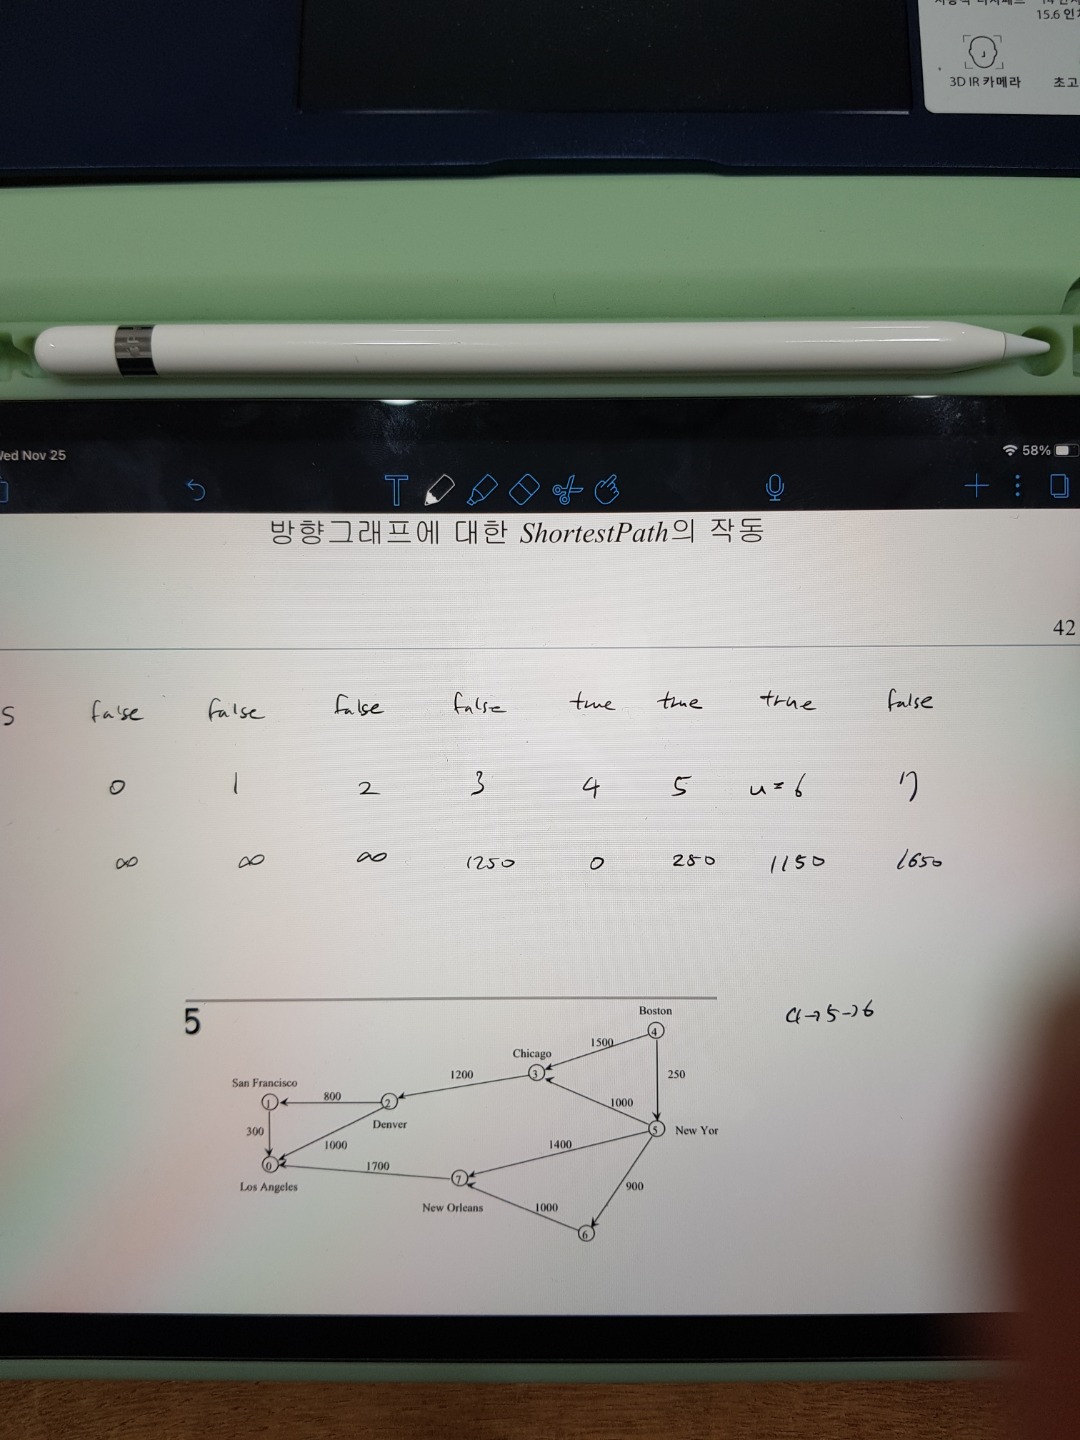 15.6 인치
3D IR 카메라
초고
Wed Nov 25
58%
방향그래프에 대한 ShortestPath의 작동
42
S false false false false true true true false
0 1 2 3 4 5 u=6 7
∞ ∞ ∞ 1250 0 250 1150 1650
5
4→5→6
Boston
4
1500
Chicago
3
1200
250
San Francisco
1
800
2
1000
Denver
5
New Yor
300
1000
1400
0
1700
7
Los Angeles
900
New Orleans
1000
6